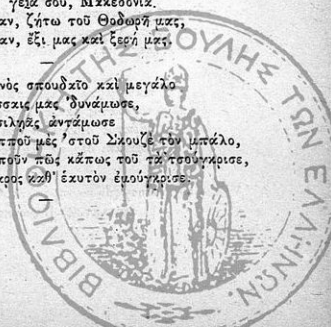 γειά σου, Μακεδονία.
αν, ζήτω τοῦ Θοδωρῆ μας,
αν, ἕξι μας καὶ ξερή μας.
—
νὸς σπουδαῖο καὶ μεγάλο
σσαις μας ᾽δυνάμωσε,
σιληᾶς ἀντάμωσε
ποῦ μὲς ᾽στοῦ Σκουζὲ τὸν μπάλο,
ποῦν πῶς κάπως τοῦ τὰ τσούγκρισε,
ρος καθ᾽ ἑαυτὸν ἐμούγκρισε.
—
ΒΙΒΛΙΟ ΤΗΣ ΒΟΥΛΗΣ ΤΩΝ ΕΛΛΗΝΩΝ